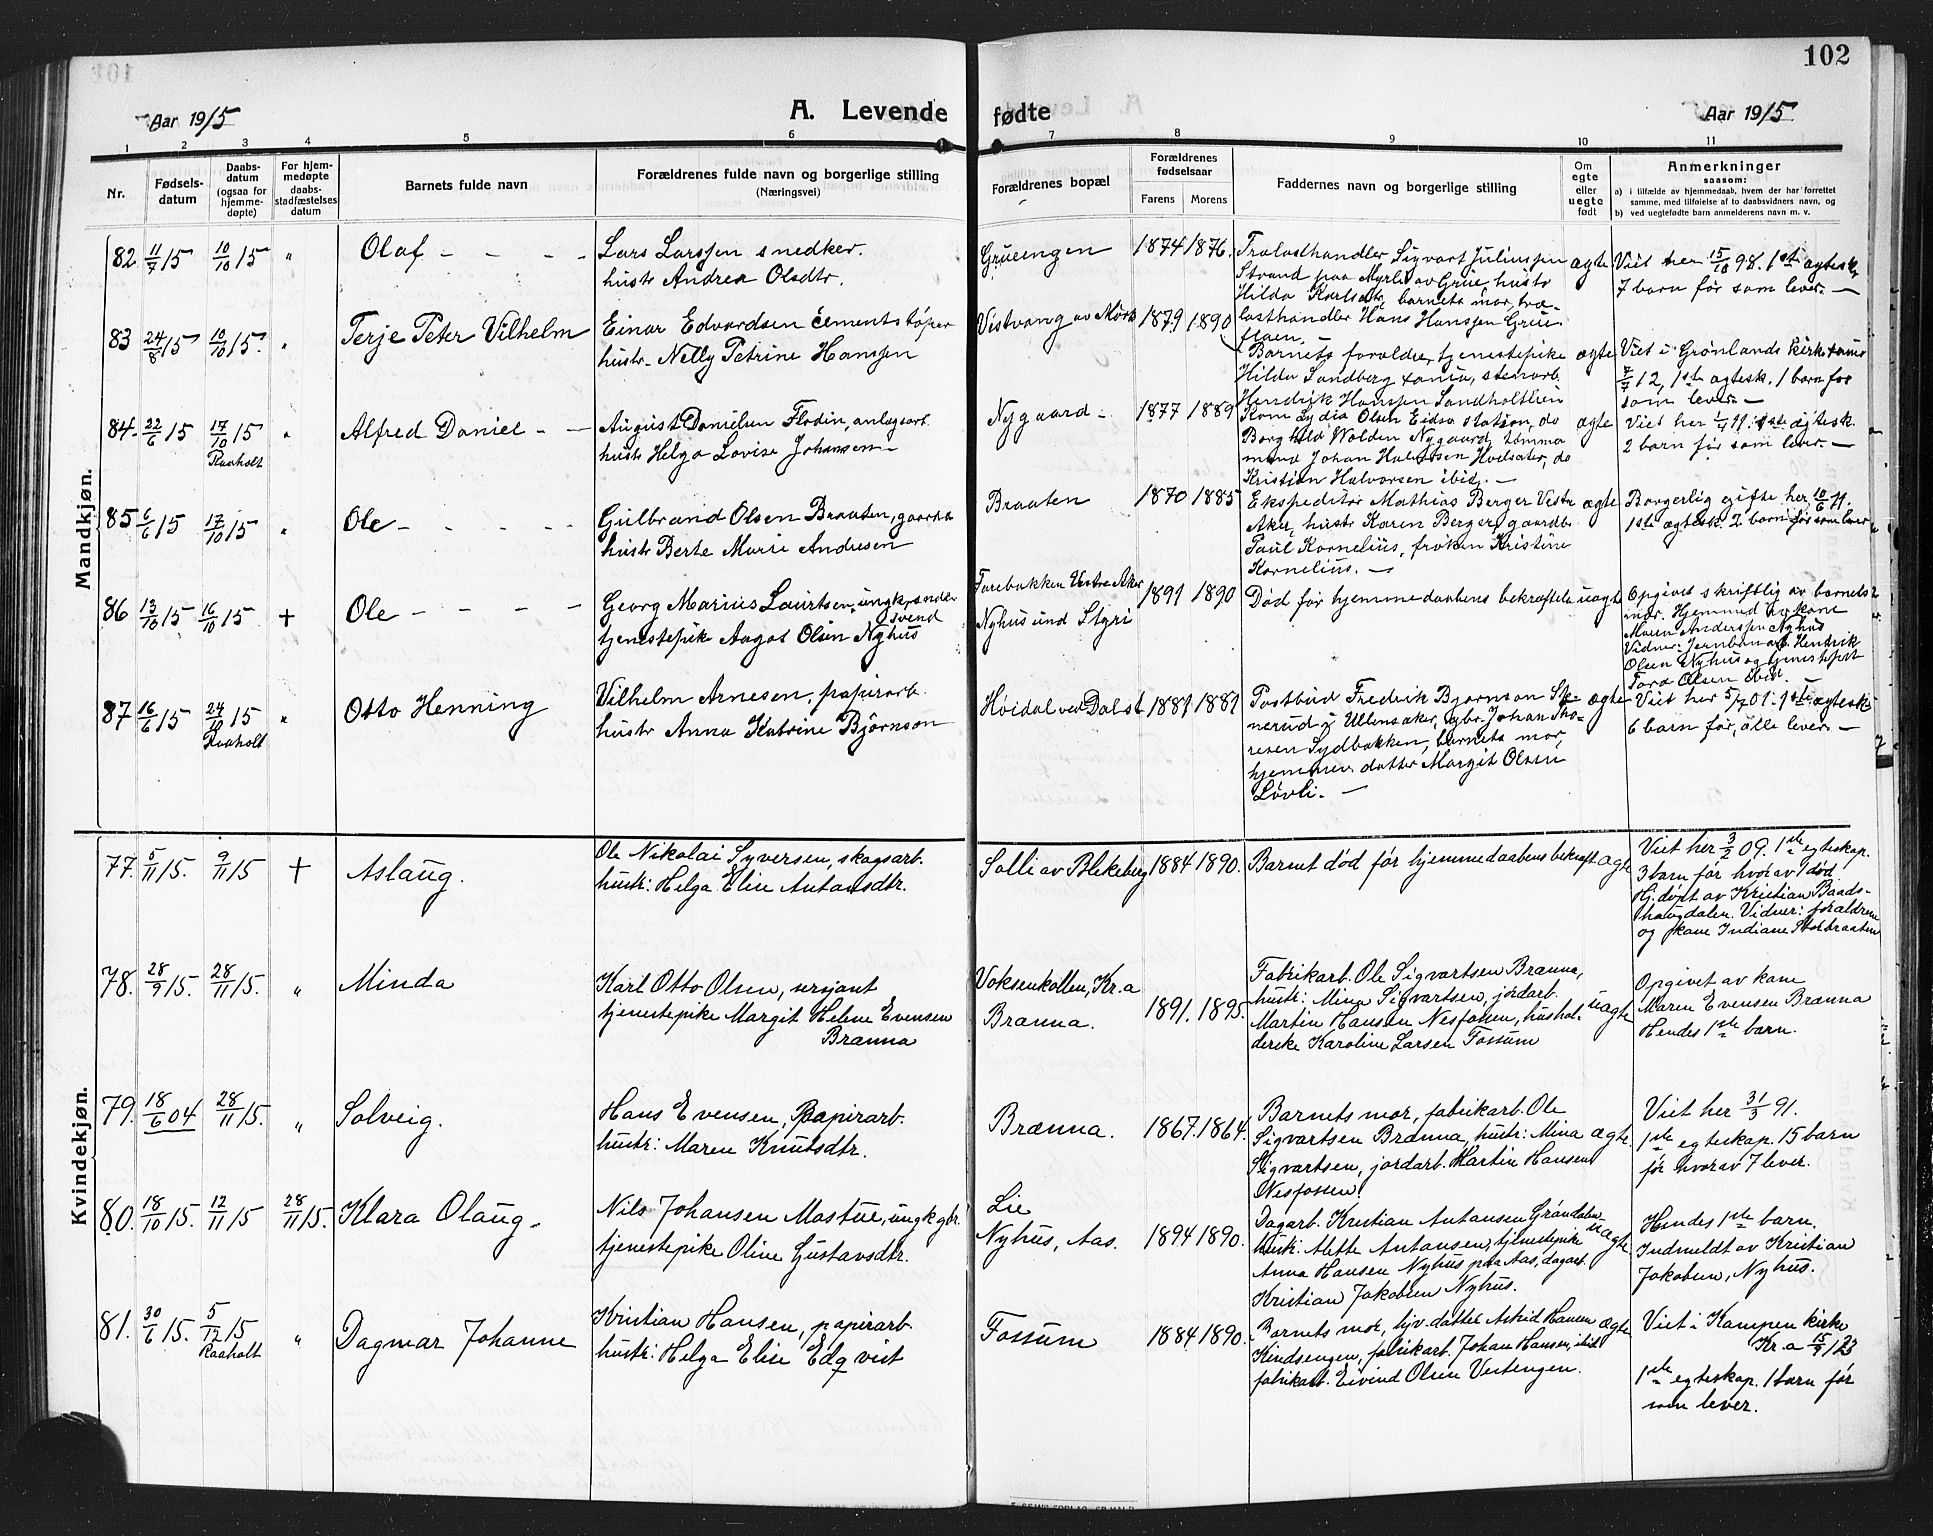 102
Aar 1915
A. Levende fødte
Aar 1915
1 2 3 4 5 6 7 8 9 10 11
Nr.
Fødsels-
datum
Daabs-
datum
(ogsaa for
hjemme-
døpte)
For hjem-
medøpte
daabs-
stadfæstelses
datum
Barnets fulde navn
Forældrenes fulde navn og borgerlige stilling
(Næringsvei)
Forældrenes bopæl
Forældrenes
fødselsaar
Farens Morens
Faddernes navn og borgerlige stilling
Om
egte
eller
uegte
født
Anmerkninger
saasom:
a) i tilfælde av hjemmedaab, hvem der har forrettet
samme, med tilføielse af to daabsvidners navn, og
b) ved uegtefødte barn anmelderens navn m. v.
Mandkjøn.
82 11/7 15 10/10 15 "
Olaf - - - -
Lars Larssen snedker.
hustr Andrea Olsdtr.
Grueengen
1874 1876.
Trælasthandler Sigvart Juliussen
Strand paa Myrli av Grue, hustr
Hilda Karlsdtr, barnets mor, træ-
lasthandler Hans Hanssen Grue-
ægte
Viet her 15/10 98. 1ste ægtesk,
7 barn før som lever. —
83 24/8 15 10/10 15. "
Terje Peter Vilhelm
Einar Edvardsen cementstøper
hustr. Nelly Petrine Hanssen
Vestvang av Mørk
1879 1890
Barnets forældre, tjenestepike
Hilda Sandberg xania, stenarb.
Henrik Hanssen Sandholtlien
ægte
Viet i Grønlands kirke xania
7/7 12, 1ste ægtesk. 1 barn før
som lever. —
84. 22/6 15 17/10 15 "
Raaholt
Alfred Daniel - -
August Danielsen Flodin, anlægsarb.
hustr Helga Lovise Johansen
Nygaard -
1877 1889
Kone Lydia Olsen Eidsv station, do
Borghild Wolden Nygaard, tømmer
mand Johan Halvorsen Hvelsæter, do
Kristian Halvorsen ibid. —
ægte
Viet her 1/4 11. 1ste ægtesk.
2 barn før som lever. —
85 6/6 15 17/10 15 "
Ole - - - - -
Gulbrand Olsen Braaten, gaardbr
hustr Berte Marie Andresen
Braaten
1870 1885
Ekspeditør Mathias Berger Vestre
Aker, hustr Karen Berger, gaardbr
Paul Kornelius, frøken Kristine
Kornelius. —
ægte
Borgerlig gifte her 10/6 11.
1ste ægtesk. 2 barn før som lever
86 13/10 15 16/10 15 +
Ole - - - -
Georg Marius Lauritsen, ungk, snedker
svend
tjenestepike Aagot Olsen Nyhus
Furebakken Vestre Aker
Nyhus und Styri
1891 1890
Død før hjemmedaabens bekræftelse
uægte
Opgivet skriftlig av barnets
mor. Hjemmed av kone
Maren Anderssen Nyhus
Vidner: Jernbanearb Hendrik
Olsen Nyhus og tjenestepike
Tora Olsen ibid.
87 16/6 15 24/10 15 "
Raaholt
Otto Henning
Vilhelm Arnesen, papirarb.
hustr Anna Katrine Bjørnson
Høidal ved Dalst
1881 1881
Postbud Fredrik Bjørnson Ske-
nerud i Ullensaker, gbr. Johan Tho-
resen Sydbakken, barnets mor,
hjemmev. datter Margit Olsen
Løvli. —
ægte
Viet her 5/7 01. 1ste ægtesk
6 barn før, alle lever. —
Kvindekjøn.
77. 5/11 15. 9/11 15 +
Aslaug.
Ole Nikolai Syversen, skogsarb.
hustr: Helga Elise Antonsdtr.
Solli av Blekeberg
1884 1890.
Barnet død før hjemmedaabens bekræft.
ægte
Viet her 3/2 09. 1ste egteskap.
3 barn før hvorav 1 død.
Hj. døpt av Kristian Baads-
haugdalen. Vidner: forældrene
og kone Indiane Storbraaten
78. 28/9 15. 28/11 15. "
Minda
Karl Otto Olsen, sersjant
tjenestepike Margit Helene Evensen
Brænna
Voksenkollen, Kr.a
Brænna.
1891. 1895.
Fabrikarb. Ole Sigvartsen Brænna,
hustr: Mina Sigvartsen, jordarb.
Martin Hansen Nesfossen, hushol-
derske Karoline Larsen Fossum
uægte
Opgivet av kone
Maren Evensen Brænna
Hendes 1ste barn.
79. 18/6 04 28/11 15. "
Solveig.
Hans Evensen, Papirarb.
hustr: Maren Knutsdtr.
Brænna.
1867. 1864.
Barnets mor, fabrikarb. Ole
Sigvartsen Brænna, hustr: Mina
Sigvartsen, jordarb. Martin Hansen
Nesfossen.
ægte.
Viet her 31/3 91.
1ste egteskap. 15 barn
før hvorav 7 lever.
80. 18/10 15. 12/11 15 28/11 15.
Klara Olaug.
Nils Johansen Mostue, ungk. gbr.
tjenestepike Olive Gustavsdtr.
Lie
Nyhus, Aas.
1894 1890.
Dagarb. Kristian Antonsen Grøndalen
hustr: Mette Antonsen, tjenestepike
Anna Hansen Nyhus paa Aas, dagarb.
Kristian Jakobsen Nyhus.
uægte
Hendes 1ste barn.
Indmeldt av Kristian
Jakobsen, Nyhus.
81. 30/6 15. 5/12 15 "
Raaholt
Dagmar Johanne
Kristian Hansen, papirarb.
hustr: Helga Elise Edqvist
Fossum
1884 1890.
Barnets mor, hjv. datter Astrid Hansen
Kindsengen, fabrikarb. Johan Hansen, ibid
fabrikarb. Eivind Olsen Vestengen.
ægte
Viet i Kampen kirke
Kr.a 15/9 13
1ste egteskap. 1 barn før
som lever.